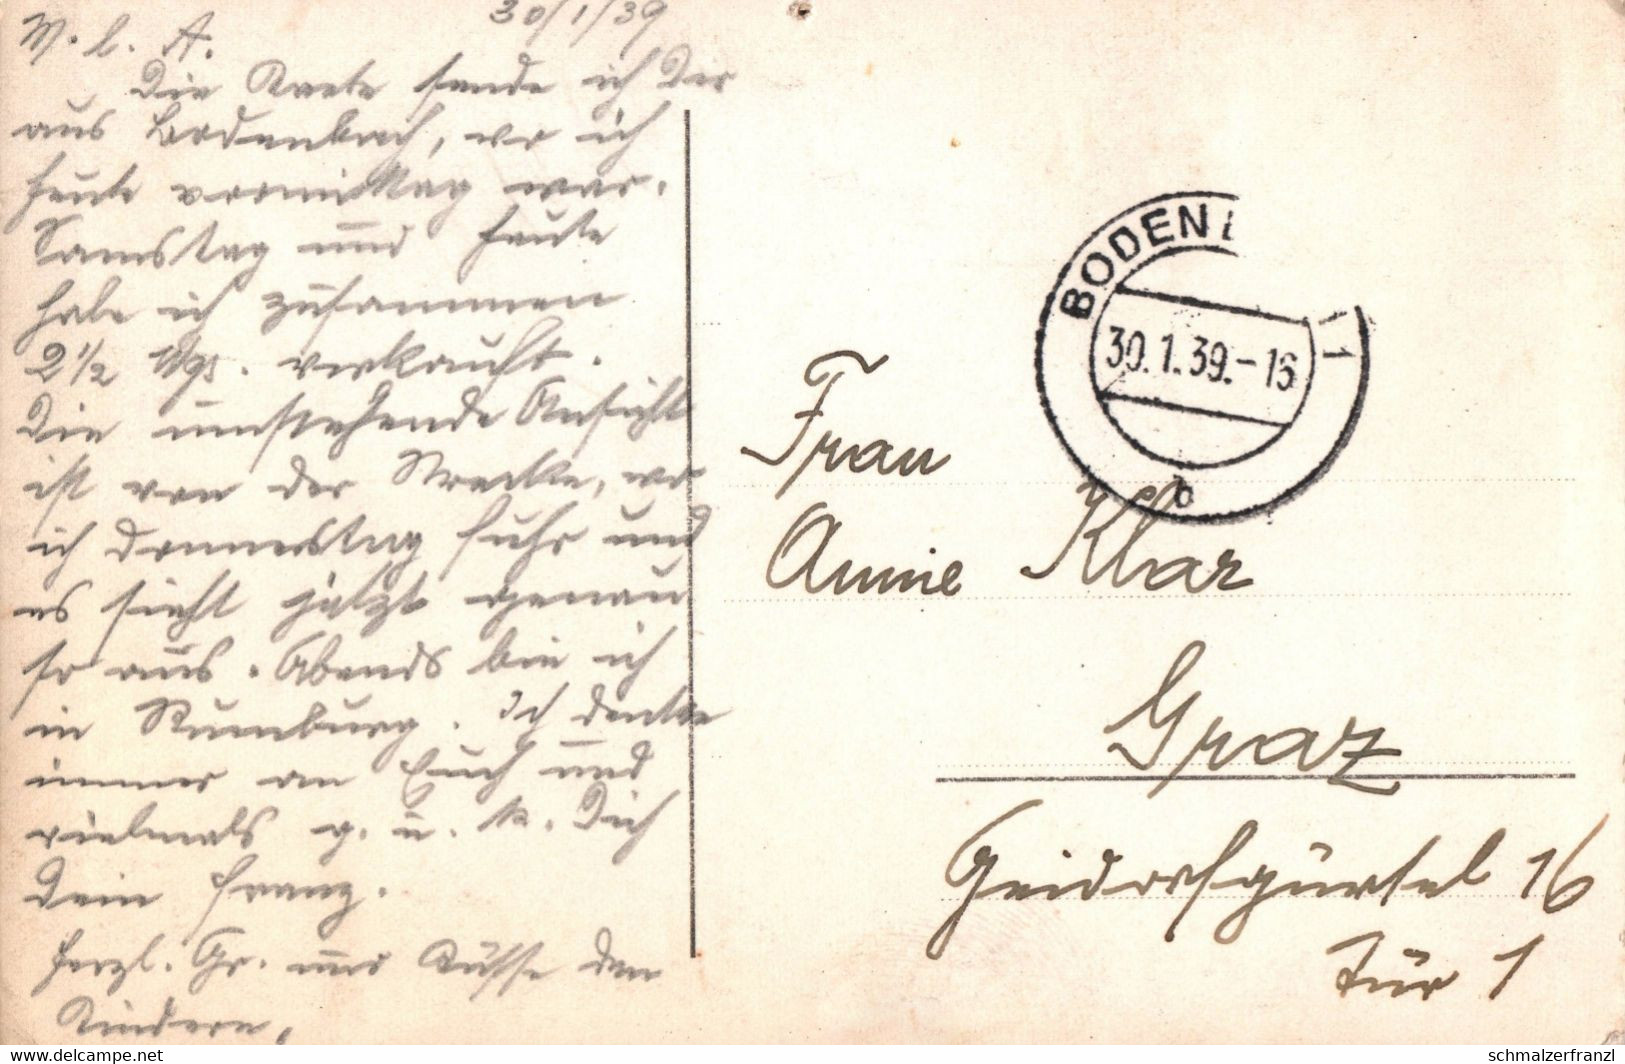 30/1/39
M. l. A.
Die Karte sende ich Dir
aus Bodenbach, wo ich
heute vormittag war.
Samstag und heute
habe ich zusammen
2 1/2 Wgs. verkauft.
Die umstehende Ansicht
ist von der Strecke, wo
ich donnerstag fuhr und
es sieht jetzt genau
so aus. Abends bin ich
in Rumburg. Ich denke
immer an Euch und
vielmals g. u. k. Dich
Dein Franz.
Herzl. Gr. und Küsse den
Kindern.
BODENB
30.1.39.-16
1
b
Frau
Annie Klar
Graz
Geidorfgürtel 16
Tür 1
www.delcampe.net
schmalzerfranzl